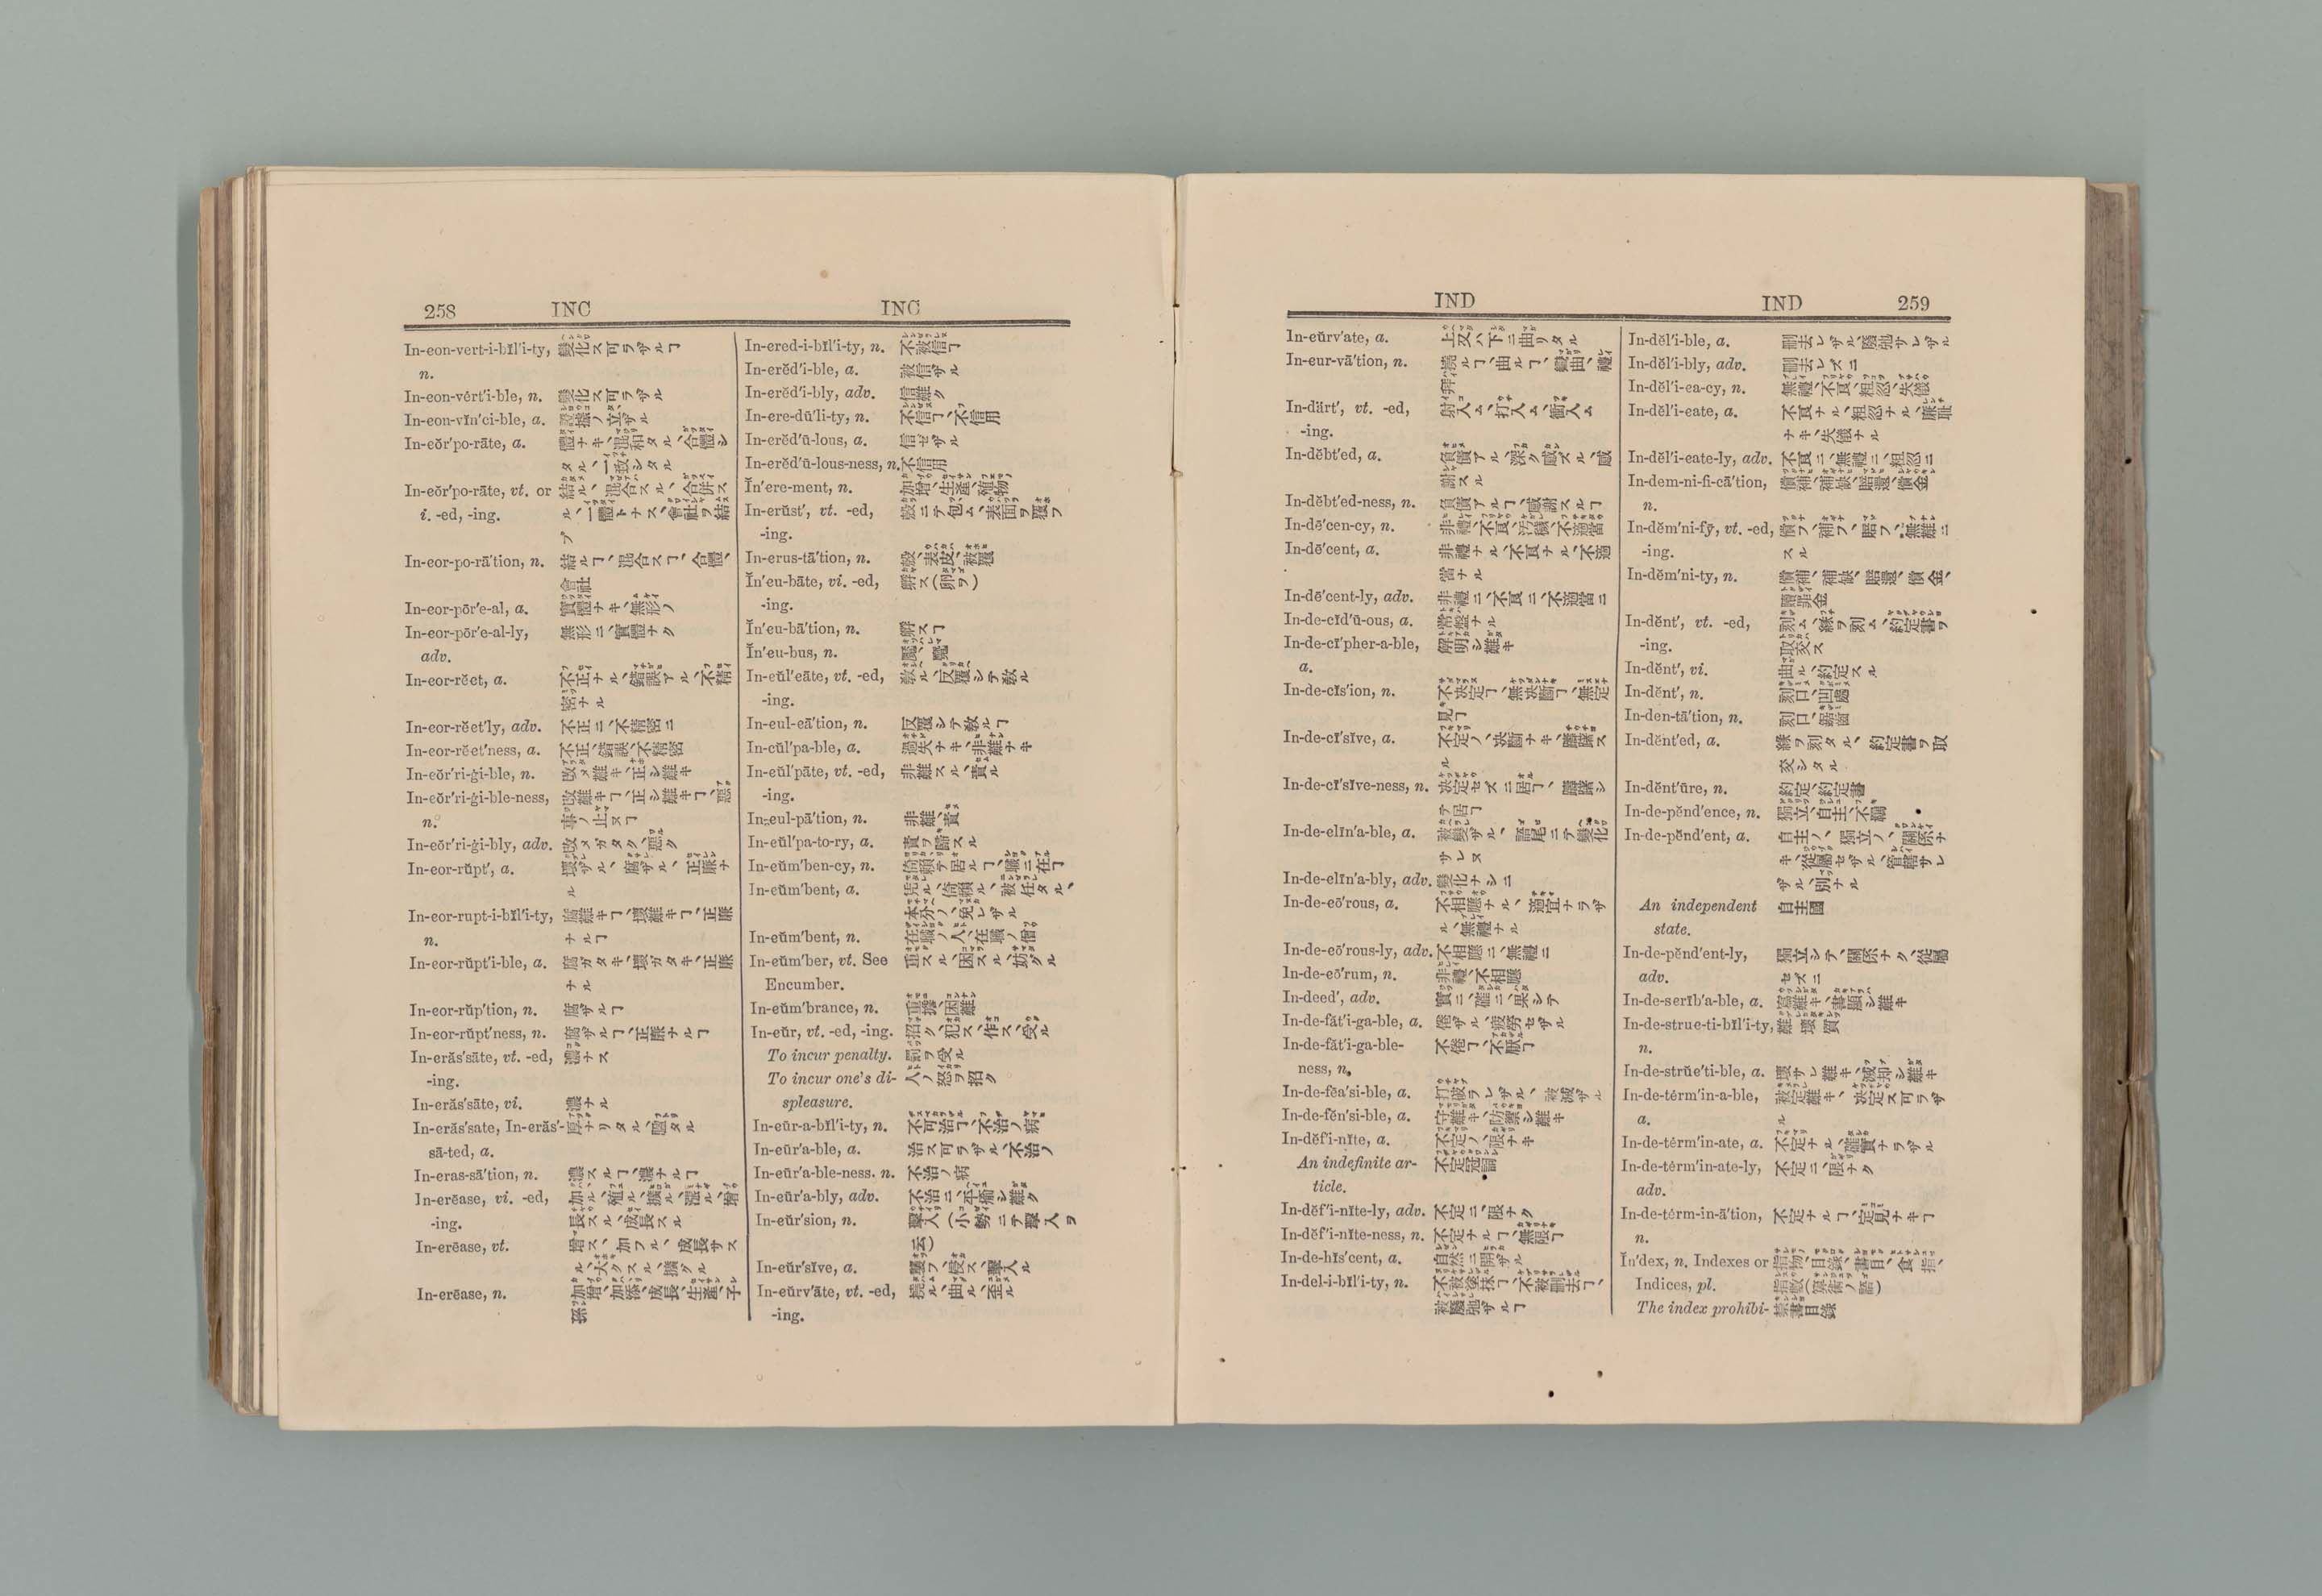 258 INC INC
In-eon-vert-i-bĭl′i-ty, 變化ス可ラザルヿ
n.
In-eon-vẽrt′i-ble, n. 變化ス可ラザル
In-eon-vĭn′ci-ble, a. 證據ノ立ザル
In-eŏr′po-rāte, a. 體ナキ、混和タル、合體シ
タル、一致シタル
In-eŏr′po-rāte, vt. or 結ル、混合スル、合併ス
i. -ed, -ing. ル、一體トナス、會社ヲ結
ブ
In-eor-po-rā′tion, n. 結ルヿ、混合スヿ、合體、
會社
In-eor-pōr′e-al, a. 實體ナキ、無形ノ
In-eor-pōr′e-al-ly, 無形ニ、實體ナク
adv.
In-eor-rĕet, a. 不正ナル、錯誤アル、不精
密ナル
In-eor-rĕet′ly, adv. 不正ニ、不精密ニ
In-eor-rĕet′ness, a. 不正、錯誤、不精密
In-eŏr′ri-ġi-ble, n. 改メ難キ、正シ難キ
In-eŏr′ri-ġi-ble-ness, 改難キヿ、正シ難キヿ、惡
n. 事ノ止ヌヿ
In-eŏr′ri-ġi-bly, adv. 改メガタク、惡ク
In-eor-rŭpt′, a. 壞ザル、腐ザル、正廉ナ
ル
In-eor-rupt-i-bĭl′i-ty, 腐難キヿ、壞難キヿ、正廉
n. ナルヿ
In-eor-rŭpt′i-ble, a. 腐ガタキ、壞ガタキ、正廉
ナル
In-eor-rŭp′tion, n. 腐ザルヿ
In-eor-rŭpt′ness, n. 腐ザルヿ、正廉ナルヿ
In-erăs′sāte, vt. -ed, 濃ナス
-ing.
In-erăs′sāte, vi. 濃ナル
In-erăs′sate, In-erăs′- 厚ナリタル、
sā-ted, a.
In-eras-sā′tion, n. 濃スルヿ、濃ナルヿ
In-erēase, vi. -ed, 加ハル、殖ル、擴ル、漲ル、增
-ing. 長スル、成長スル
In-erēase, vt. 增ス、加フル、成長サス
ル、大クスル、擴グル
In-erēase, n. 加增、加添、成長、生產、子
孫
In-ered-i-bĭl′i-ty, n. 不被信ヿ
In-erĕd′i-ble, a. 被信ザル
In-erĕd′i-bly, adv. 信難ク
In-ere-dū′li-ty, n. 不信ヿ、不信用
In-erĕd′ū-lous, a. 信ゼザル
In-erĕd′ū-lous-ness, n. 不信用
Ĭn′ere-ment, n. 加增、生產、殖物
In-erŭst′, vt. -ed, 殼ニテ包ム、表面ヲ覆フ
-ing.
In-erus-tā′tion, n. 殼、表皮、被覆
Ĭn′eu-bāte, vi. -ed, 孵ス(卵ヲ)
-ing.
Ĭn′eu-bā′tion, n. 孵スヿ
Ĭn′eu-bus, n. 魘、魘
In-eŭl′eāte, vt. -ed, 敎ル、反覆シテ敎ル
-ing.
In-eul-eā′tion, n. 反覆シテ敎ルヿ
In-eŭl′pa-ble, a. 過失ナキ、非難ナキ
In-eŭl′pāte, vt. -ed, 非難スル、責ル
-ing.
In-eul-pā′tion, n. 非難、責
In-eŭl′pa-to-ry, a. 責ヲ歸スル
In-eŭm′ben-cy, n. 倚賴テ居ルヿ、職ニ在ヿ
In-eŭm′bent, a. 凭ル、倚賴ル、被任タル、
本分ノ、免レザル
In-eŭm′bent, n. 在職ノ人、在職ノ僧
In-eŭm′ber, vt. See 重スル、困スル、妨グル
Encumber.
In-eŭm′brance, n. 重擔、困難
In-eŭr, vt. -ed, -ing. 招ク、犯ス、作ス、受ル
To incur penalty. 罰ヲ受ル
To incur one's di- 人ノ怒ヲ招ク
spleasure.
In-eūr-a-bĭl′i-ty, n. 不可治ヿ、不治ノ病
In-eūr′a-ble, a. 治ス可ラザル、不治ノ
In-eūr′a-ble-ness. n. 不治ノ病
In-eūr′a-bly, adv. 不治ニ、平癒シ難ク
In-eŭr′sion, n. 擊入(小勢ニテ擊入ヲ
云)
In-eŭr′sĭve, a. 襲フ、侵ス、擊入ル
In-eŭrv′āte, vt. -ed, 撓ル、曲ル、歪ル
-ing.
IND IND 259
In-eŭrv′ate, a. 上又ハ下ニ曲リタル
In-eur-vā′tion, n. 撓ルヿ、曲ルヿ、彎曲、禮
拜
In-därt′, vt. -ed, 射入ム、打入ム、衝入ム
-ing.
In-dĕbt′ed, a. 負債アル、深ク感ズル、感
謝スル
In-dĕbt′ed-ness, n. 負債アルヿ、感謝スルヿ
In-dē′cen-cy, n. 非禮、不良、汚穢、不適當
In-dē′cent, a. 非禮ナル、不良ナル、不適
當ナル
In-dē′cent-ly, adv. 非禮ニ、不良ニ、不適當ニ
In-de-cĭd′ū-ous, a. 常盤ナル
In-de-cī′pher-a-ble, 解明シ難キ
a.
In-de-cĭs′ion, n. 不決定ヿ、無決斷ヿ、無定
見ヿ
In-de-cī′sĭve, a. 不定ノ、決斷ナキ、躊躇ス
ル
In-de-cī′sĭve-ness, n. 決定セズニ居ヿ、躊躇シ
テ居ヿ
In-de-elīn′a-ble, a. 被變ザル、語尾ニテ變化
サレヌ
In-de-elīn′a-bly, adv. 變化ナシニ
In-de-eō′rous, a. 不相應ナル、適宜ナラザ
ル、無禮ナル
In-de-eō′rous-ly, adv. 不相應ニ、無禮ニ
In-de-eō′rum, n. 非禮、不相應
In-deed′, adv. 實ニ、確ニ、果シテ
In-de-făt′i-ga-ble, a. 倦ザル、疲勞セザル
In-de-făt′i-ga-ble- 不倦ヿ、不厭ヿ
ness, n.
In-de-fēa′si-ble, a. 打破ラレザル、被滅ザル
In-de-fĕn′si-ble, a. 守難キ、防禦シ難キ
In-dĕf′i-nĭte, a. 不定ノ、限ナキ
An indefinite ar- 不定冠詞
ticle.
In-dĕf′i-nĭte-ly, adv. 不定ニ、限ナク
In-dĕf′i-nĭte-ness, n. 不定ナルヿ、無限ヿ
In-de-hĭs′cent, a. 自然ニ開ザル
In-del-i-bĭl′i-ty, n. 不被塗抹ヿ、不被刪去ヿ、
被廢弛ザルヿ
In-dĕl′i-ble, a. 刪去レザル、廢弛サレザル
In-dĕl′i-bly, adv. 刪去レズニ
In-dĕl′i-ea-cy, n. 無禮、不良、粗忽、失儀
In-dĕl′i-eate, a. 不良ナル、粗忽ナル、廉恥
ナキ、失儀ナル
In-dĕl′i-eate-ly, adv. 不良ニ、無禮ニ、粗忽ニ
In-dem-ni-fi-cā′tion, 償補、補缺、賠還、償金
n.
In-dĕm′ni-fȳ, vt. -ed, 償フ、補フ、賠フ、無難ニ
-ing. スル
In-dĕm′ni-ty, n. 償補、補缺、賠還、償金、
贖罪金
In-dĕnt′, vt. -ed, 刻ム、緣ヲ刻ム、約定書ヲ
-ing. 取交ス
In-dĕnt′, vi. 曲ル、約定スル
In-dĕnt′, n. 刻口、凹處
In-den-tā′tion, n. 刻口、鋸齒
In-dĕnt′ed, a. 緣ヲ刻タル、約定書ヲ取
交シタル
In-dĕnt′ūre, n. 約定、約定書
In-de-pĕnd′ence, n. 獨立、自主、不羈
In-de-pĕnd′ent, a. 自主ノ、獨立ノ、關係ナ
キ、從屬セザル、管轄サレ
ザル、別ナル
An independent 自主國
state.
In-de-pĕnd′ent-ly, 獨立シテ、關係ナク、從屬
adv. セズニ
In-de-serīb′a-ble, a. 寫難キ、書顯シ難キ
In-de-strue-ti-bĭl′i-ty, 難壞質
n.
In-de-strŭe′ti-ble, a. 壞サレ難キ、滅却シ難キ
In-de-tẽrm′in-a-ble, 被定難キ、決定ス可ラザ
a. ル
In-de-tẽrm′in-ate, a. 不定ナル、確實ナラザル
In-de-tẽrm′in-ate-ly, 不定ニ、限ナク
adv.
In-de-tẽrm-in-ā′tion, 不定ナルヿ、定見ナキヿ
n.
Ĭn′dex, n. Indexes or 指物、目錄、書目、食指、
Indices, pl. 指數(算術ノ語)
The index prohibi- 禁書目錄